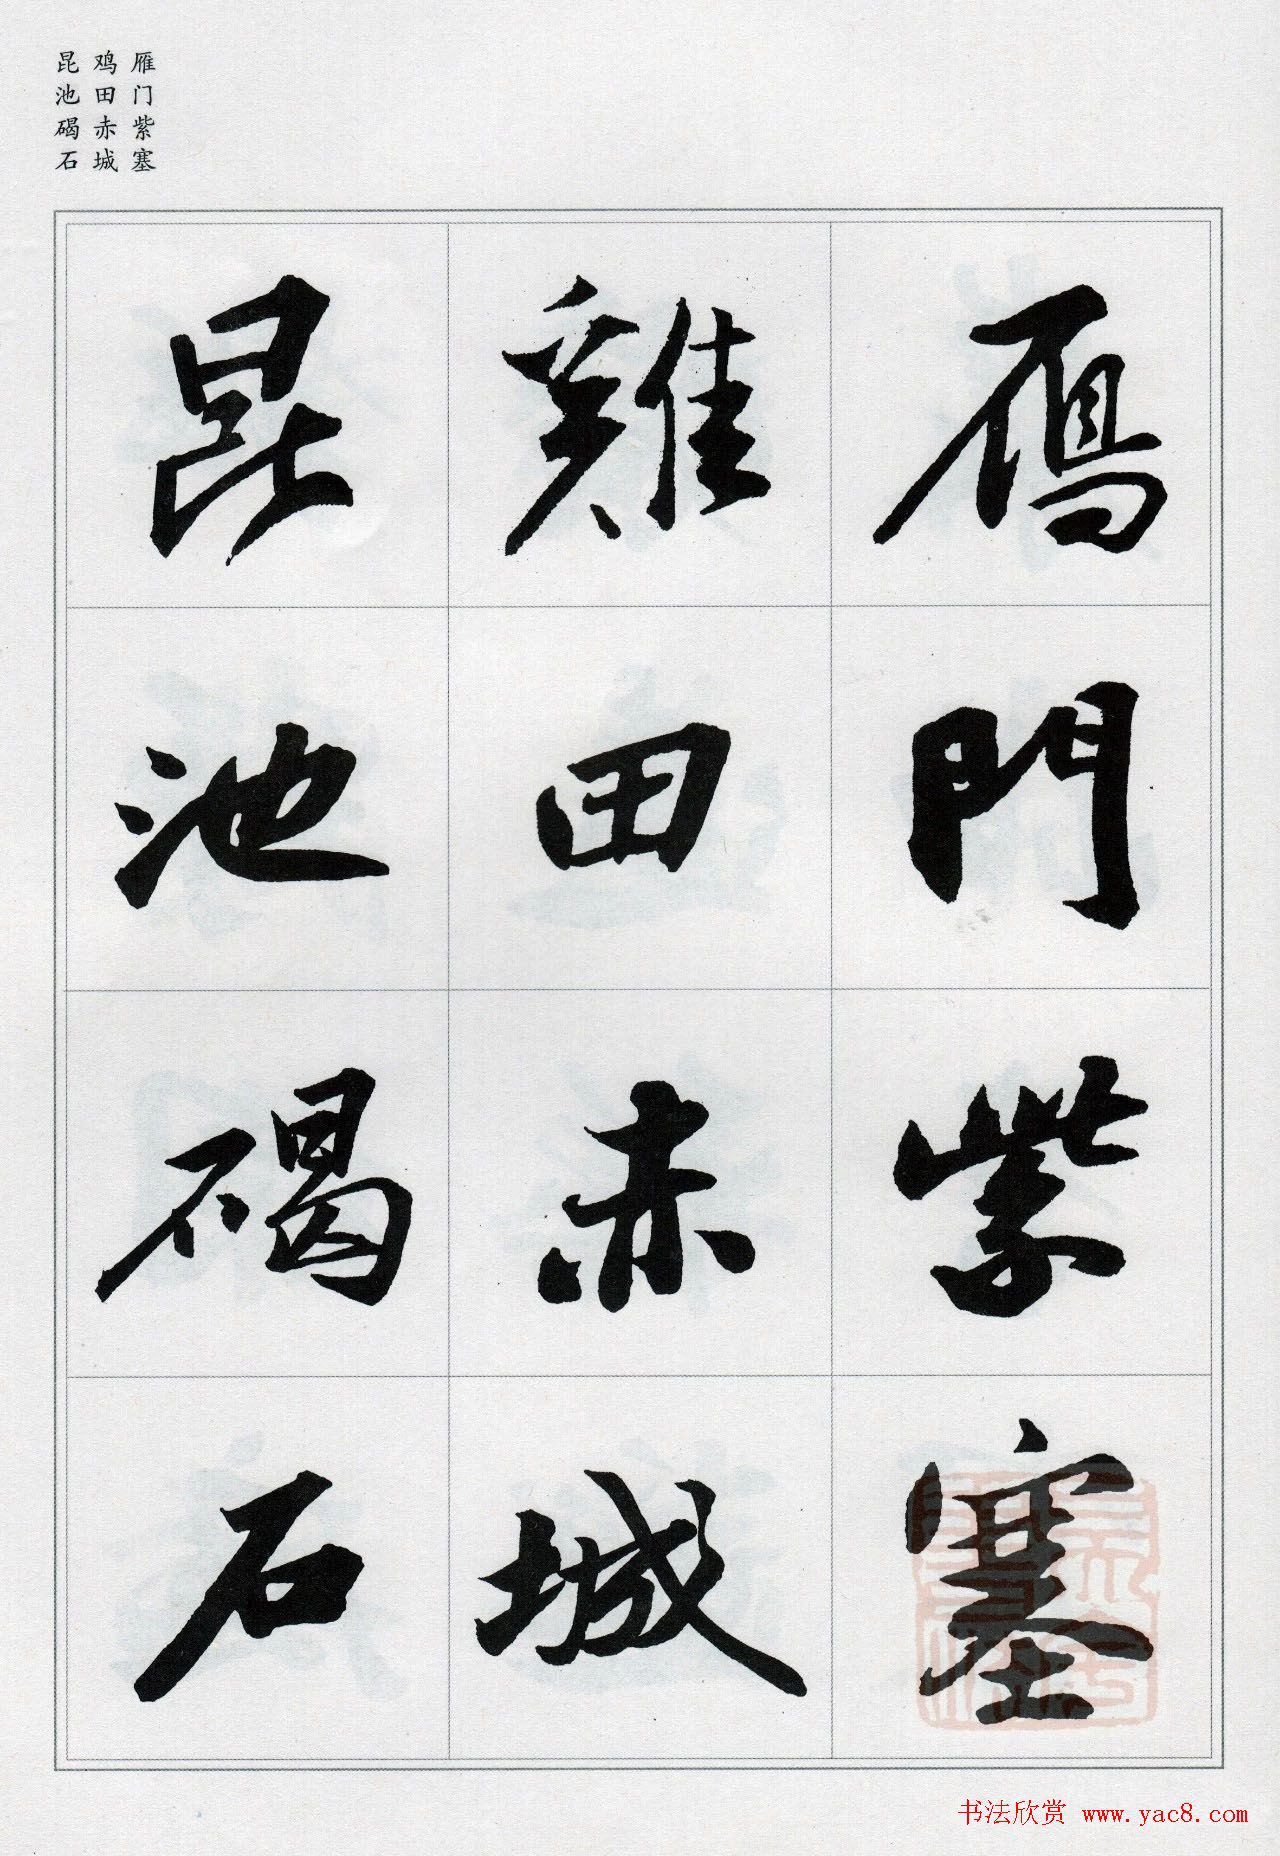 雁门紫塞
鸡田赤城
昆池碣石
鴈門紫塞
雞田赤城
昆池碣石
书法欣赏 www.yac8.com